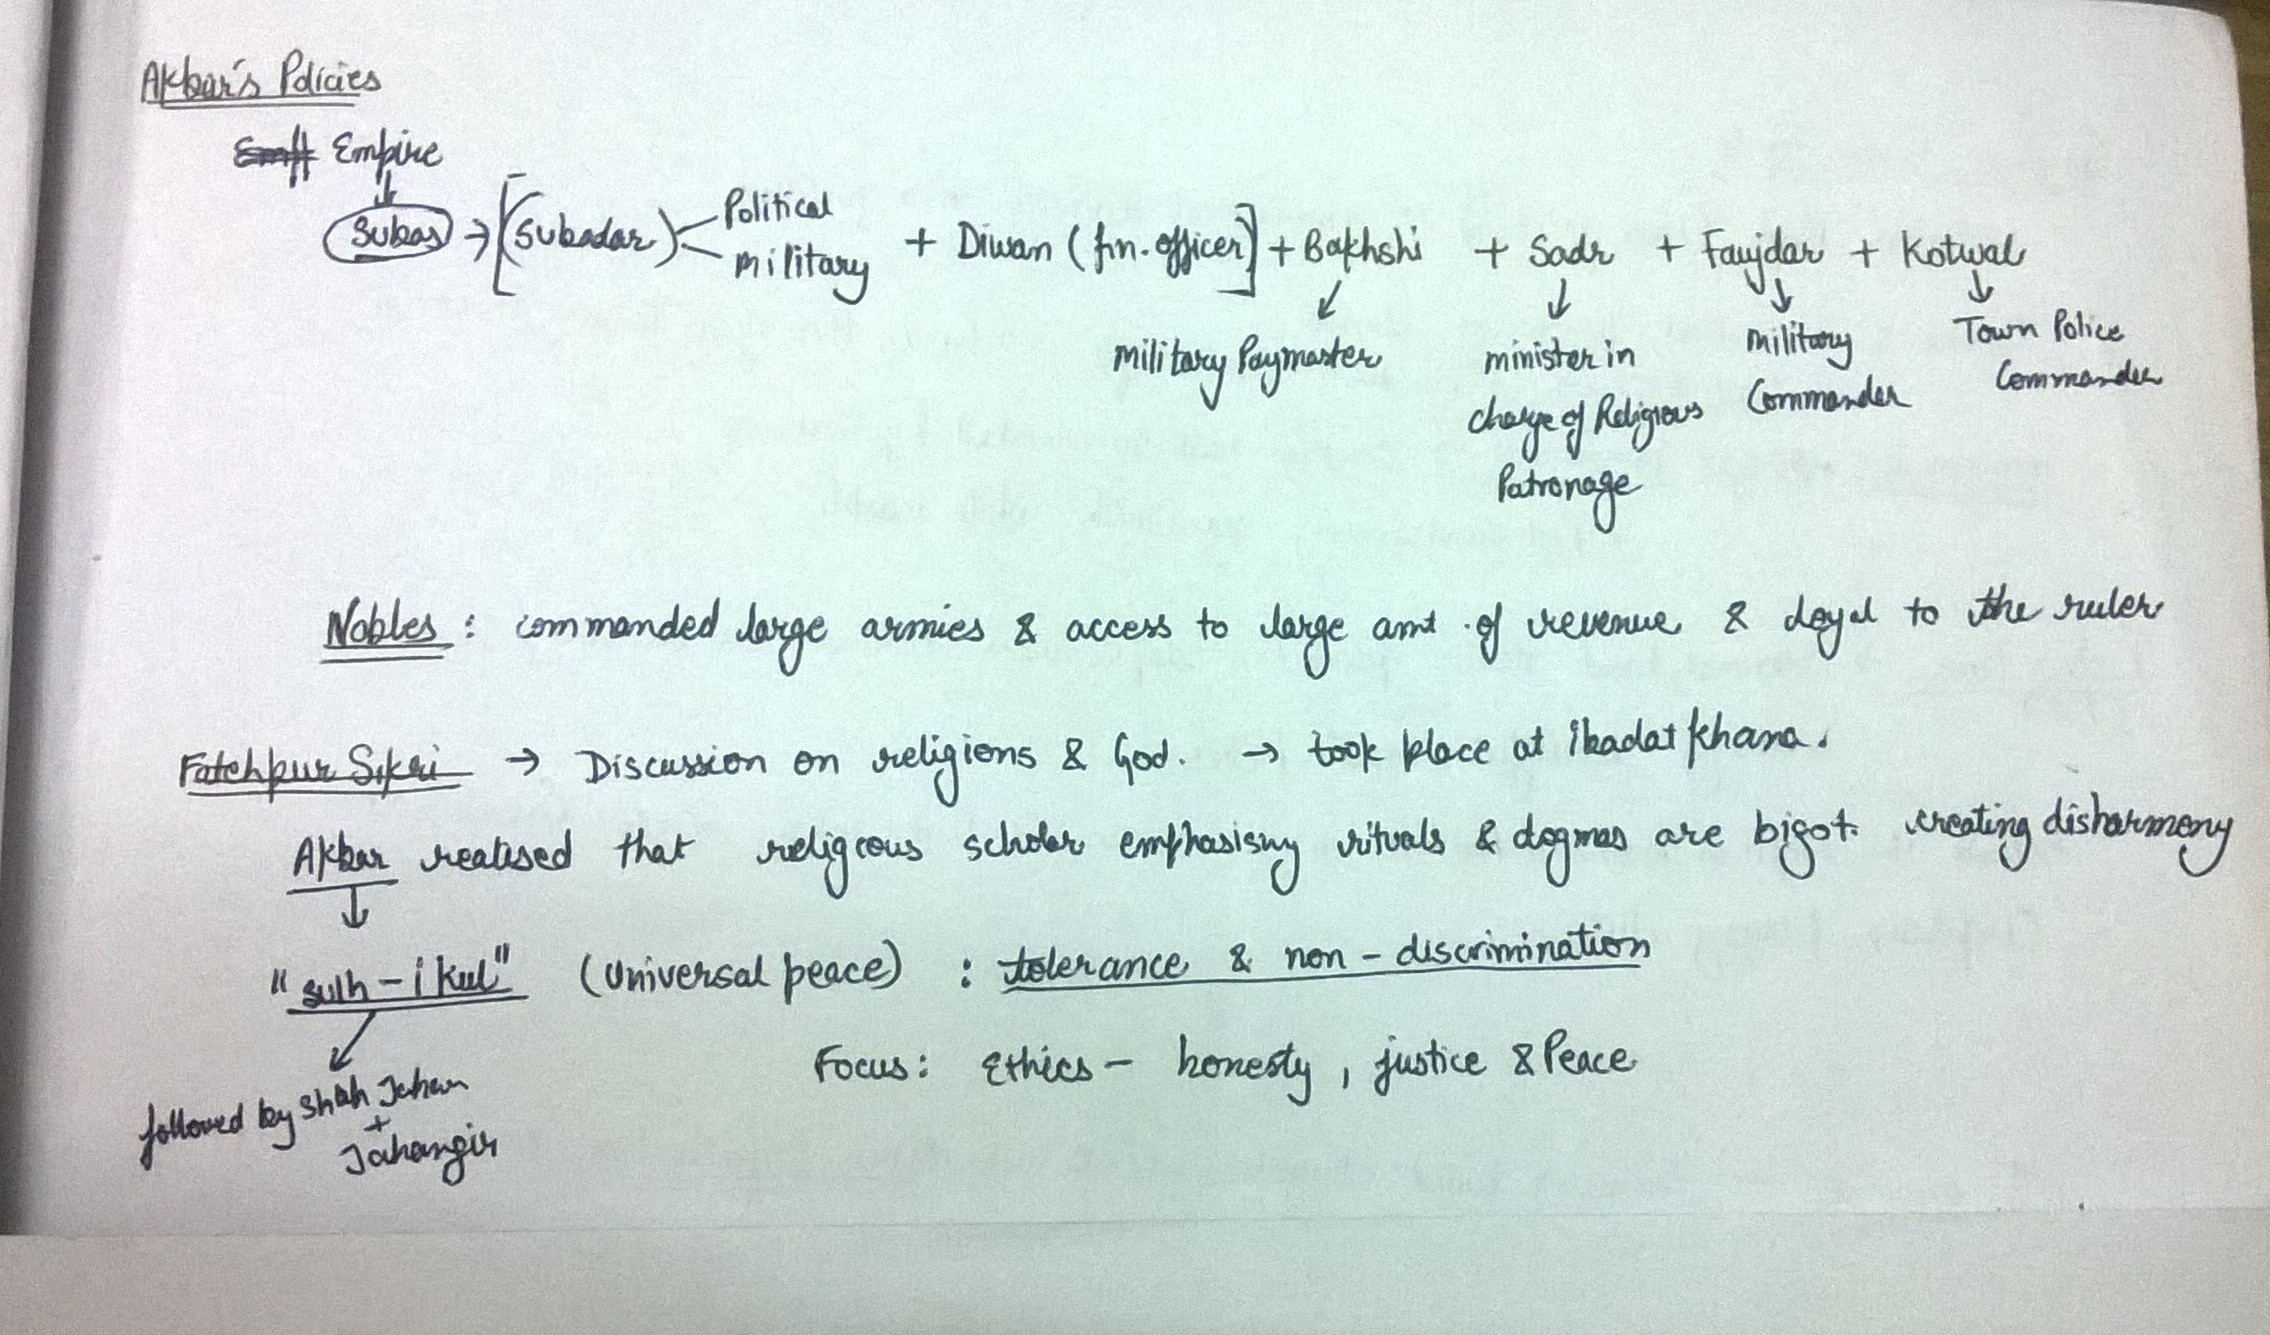 Akbar's Policies
Empire
↓
Subas → [(Subadar) Political Military + Diwan (fin. officer)] + Bakhshi + Sadr + Faujdar + Kotwal
Military Paymaster
minister in charge of Religious Patronage
Military Commander
Town Police Commander
Nobles : commanded large armies & access to large amt. of revenue & loyal to the ruler
Fatehpur Sikri → Discussion on religions & God. → took place at Ibadat Khana.
Akbar realised that religious scholar emphasising rituals & dogmas are bigot. creating disharmony
↓
"sulh-i kul" (Universal peace) : tolerance & non-discrimination
Focus: Ethics - honesty, justice & Peace
followed by Shah Jahan
+
Jahangir